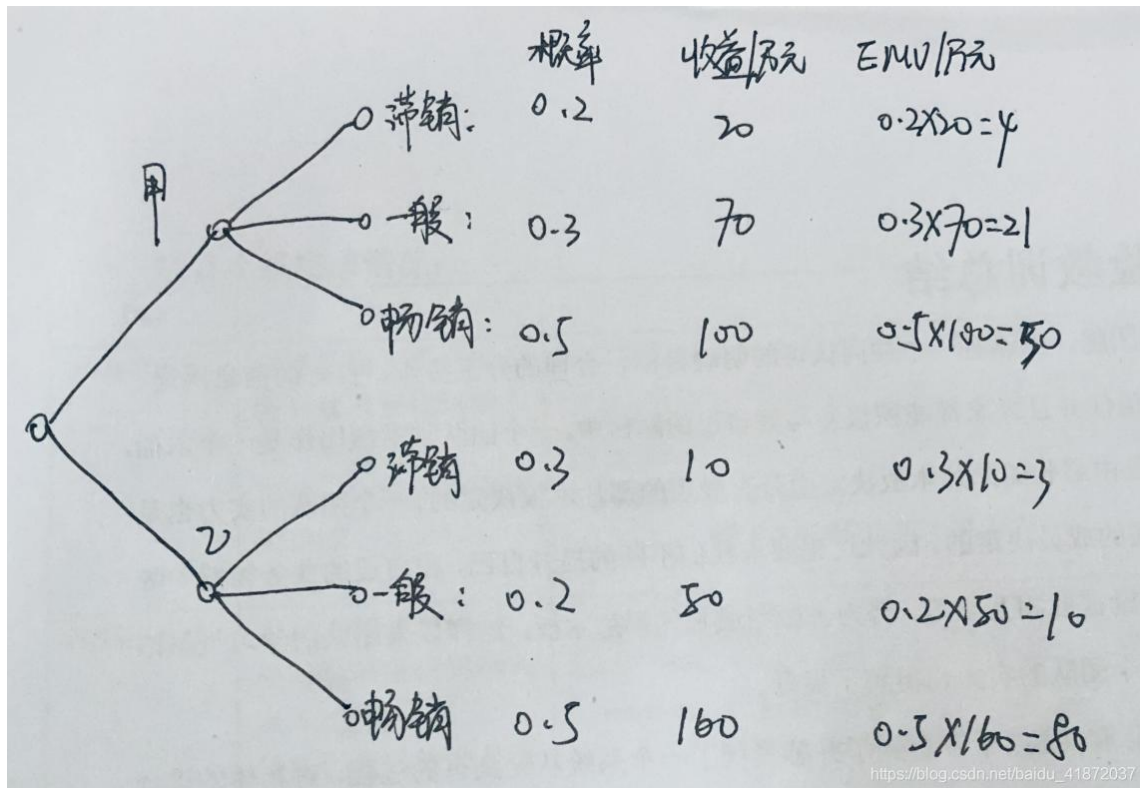 概率 收益/万元 EMV/万元
滞销: 0.2 20 0.2×20=4
甲
一般: 0.3 70 0.3×70=21
畅销: 0.5 100 0.5×100=50
滞销 0.3 10 0.3×10=3
乙
一般: 0.2 50 0.2×50=10
畅销 0.5 160 0.5×160=80
https://blog.csdn.net/baidu_41872037